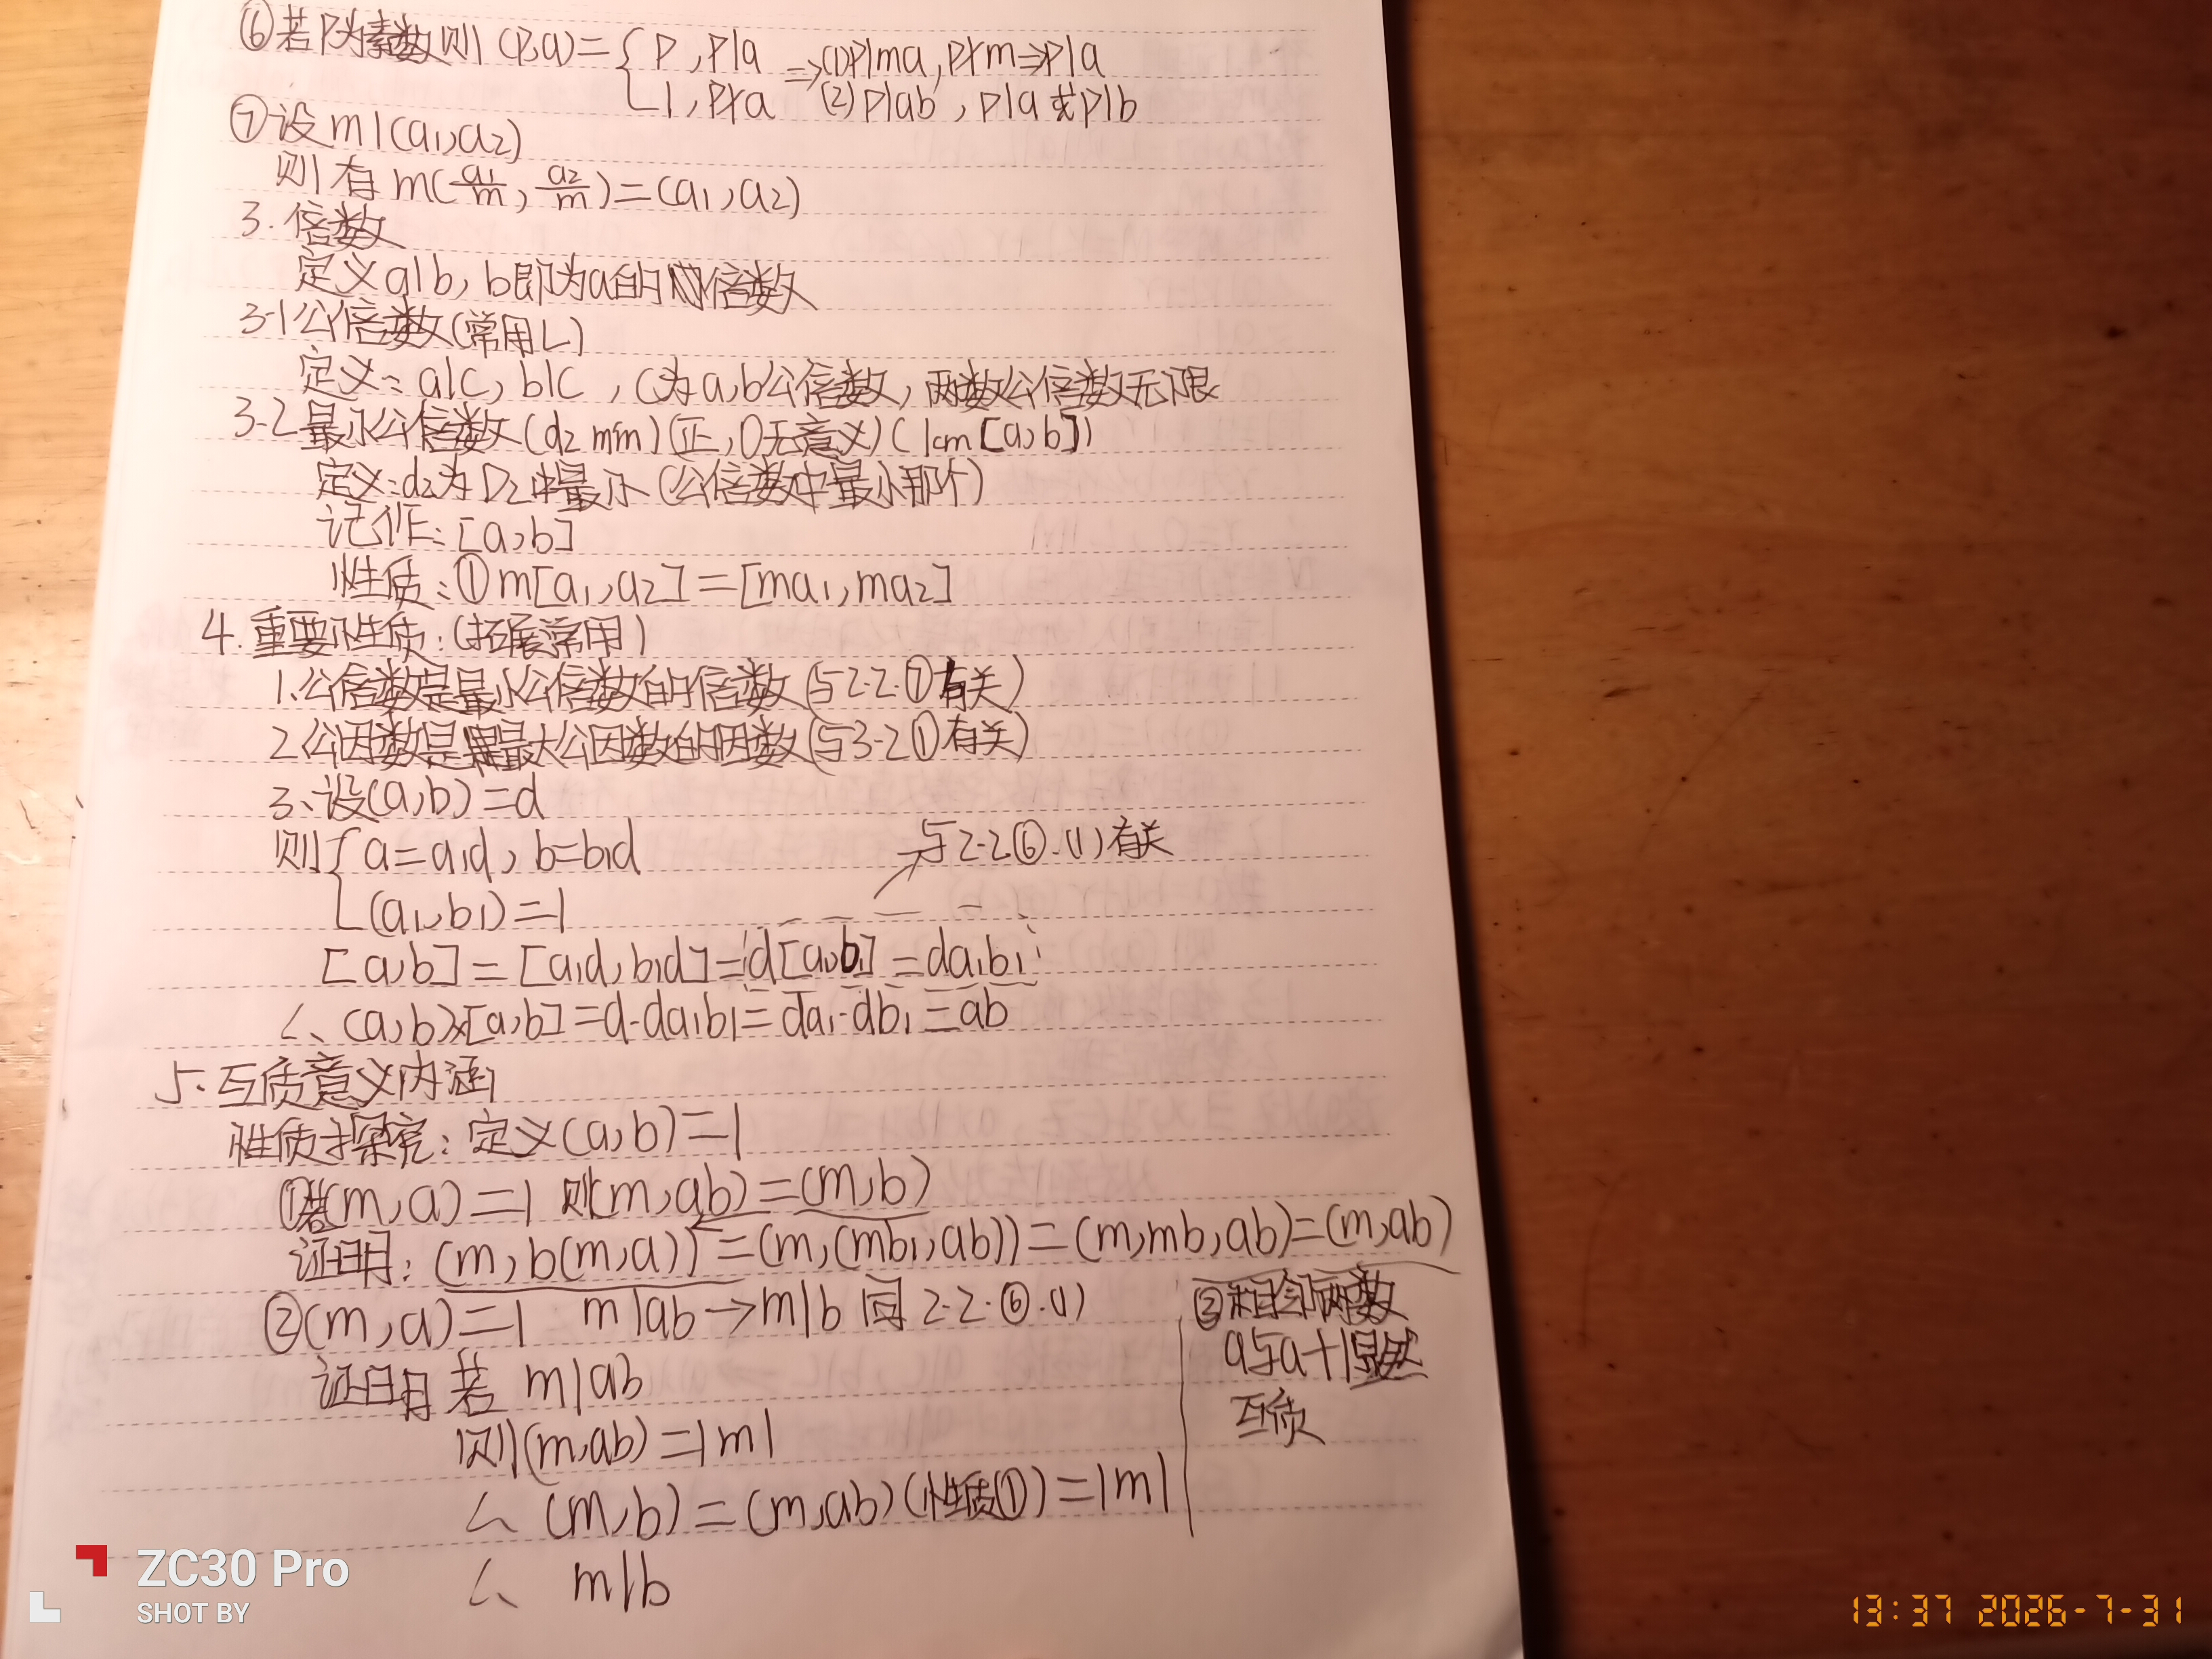 ⑥若P为素数则(P,a)={p,p|a ⇒(1)p|ma,p∤m⇒p|a
1,p∤a (2)p|ab,p|a或p|b
⑦设m|(a₁,a₂)
则有m(a₁/m,a₂/m)=(a₁,a₂)
3.倍数
定义a|b,b即为a的倍数
3-1公倍数(常用L)
定义:a|c,b|c,c为a,b公倍数,两数公倍数无限
3-2最小公倍数(d₂ min)(正,0无意义)(lcm[a,b])
定义:d₂为D₂中最小(公倍数中最小那个)
记作:[a,b]
性质:①m[a₁,a₂]=[ma₁,ma₂]
4.重要性质:(拓展常用)
1.公倍数是最小公倍数的倍数(与2-2.⑦有关)
2.公因数是最大公因数的因数(与3-2①有关)
3.设(a,b)=d
则{a=a₁d,b=b₁d
(a₁,b₁)=1
→与2-2.⑥.(1)有关
[a,b]=[a₁d,b₁d]=d[a₁,b₁]=da₁b₁
∴(a,b)×[a,b]=d·da₁b₁=da₁·db₁=ab
5.互质意义内涵
性质探究:定义(a,b)=1
①若(m,a)=1则(m,ab)=(m,b)
证明:(m,b(m,a))=(m,(mb,ab))=(m,mb,ab)=(m,ab)
②(m,a)=1 m|ab→m|b同2-2.⑥.(1)
证明若m|ab
则(m,ab)=|m|
∴(m,b)=(m,ab)(性质①)=|m|
∴m|b
③相邻两数
a与a+1显然
互质
ZC30 Pro
SHOT BY
13:37 2026-7-31